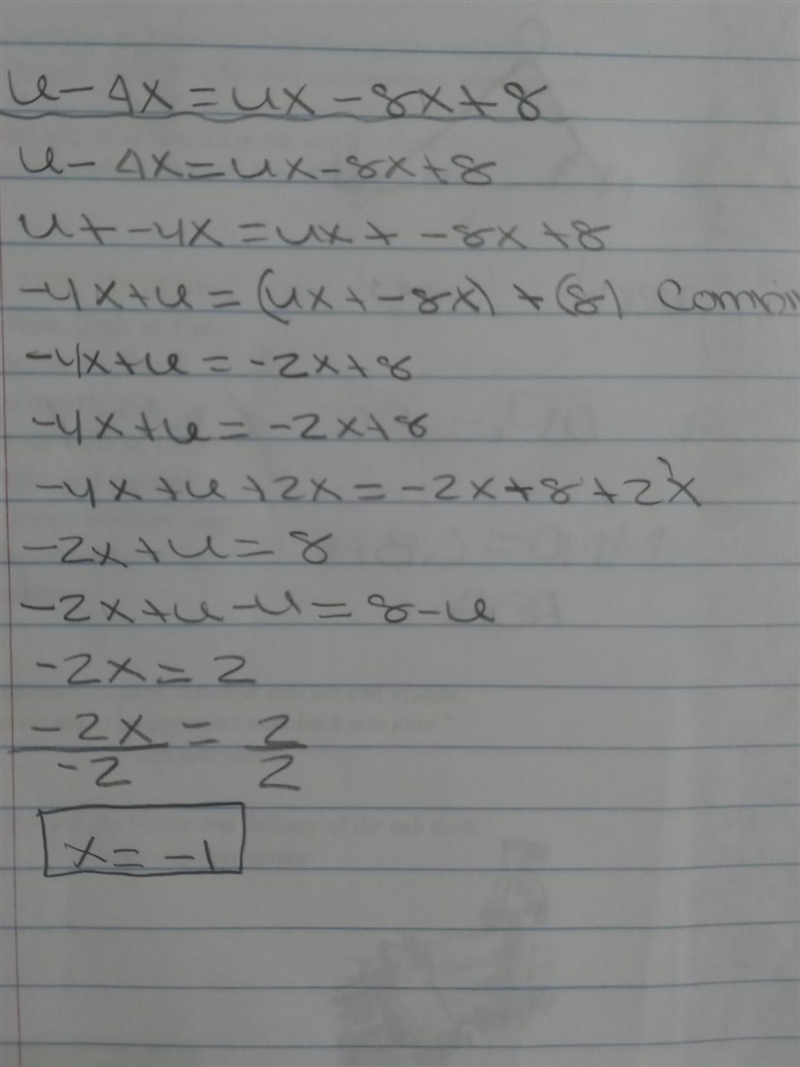 6-4x=6x-8x+8
6-4x=6x-8x+8
6+-4x=6x+-8x+8
-4x+6=(6x+-8x)+(8) Combin
-4x+6=-2x+8
-4x+6=-2x+8
-4x+6+2x=-2x+8+2x
-2x+6=8
-2x+6-6=8-6
-2x=2
-2x = 2
-2 2
x=-1